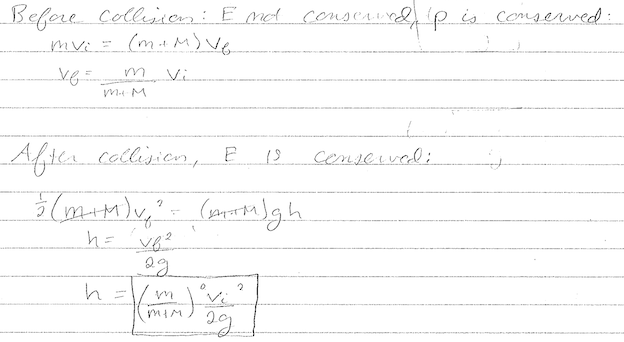 Before collision: E not conserved, p is conserved:
mvi = (m+M)vf
vf = m/(m+M) vi
After collision, E is conserved:
½(m+M)vf² = (m+M)gh
h = vf²/2g
h = (m/(m+M))² vi²/2g